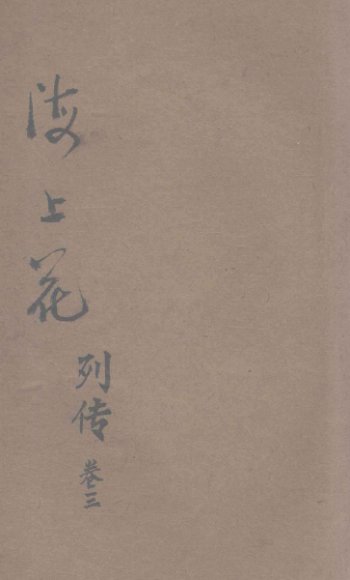 海上花
列传
卷三